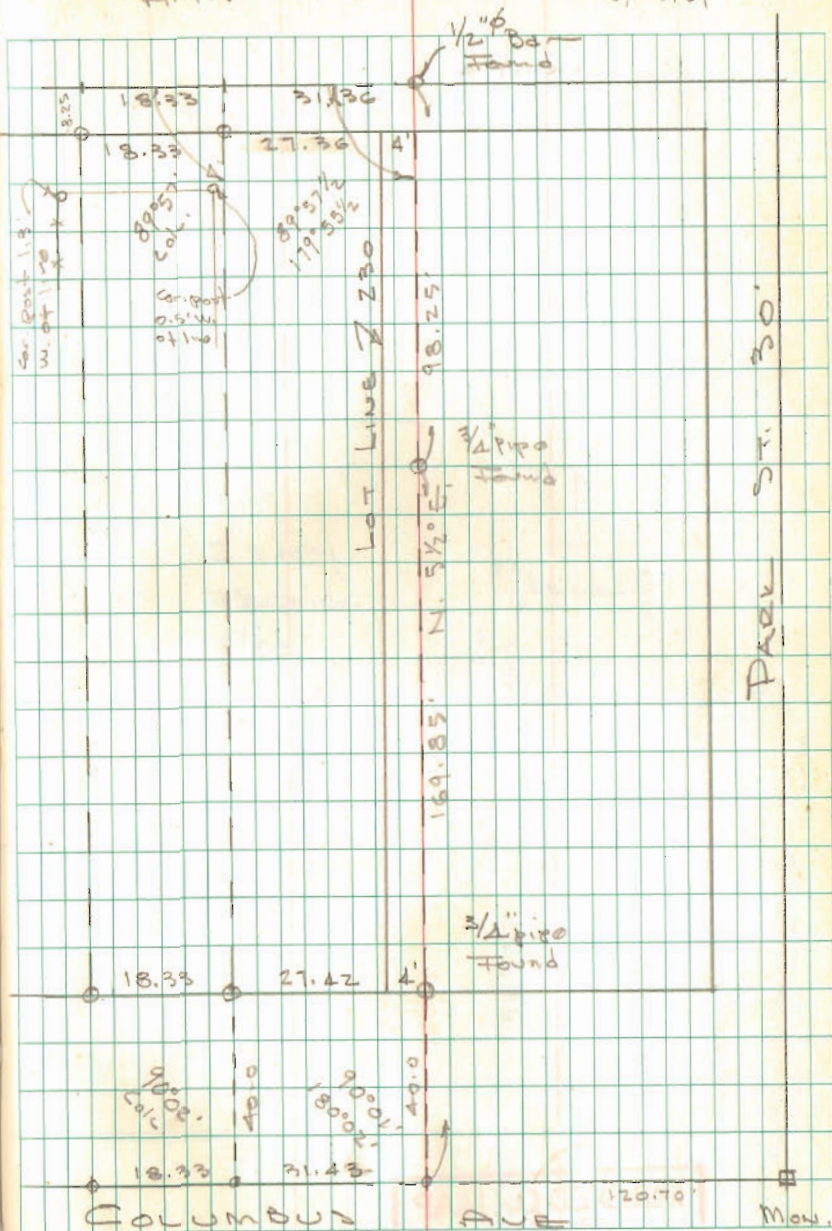 1/2"ø Bar
Found
18.33 31.36
8.25
18.33 27.36 4'
Cor. Post 1.3'
W. of line
89°57'
Calc.
89°57 1/2
179°55 1/2
Cor. post
0.5' W.
of line
LOT LINE Z 230
98.25'
3/4" pipe
Found
N. 5 1/2° E.
169.85'
PARK ST. 30'
3/4" pipe
Found
18.33 27.42 4'
90°02'
Calc.
40.0
90°01'
180°02'
40.0
18.33 31.43
120.70'
COLUMBUS AVE Mon.